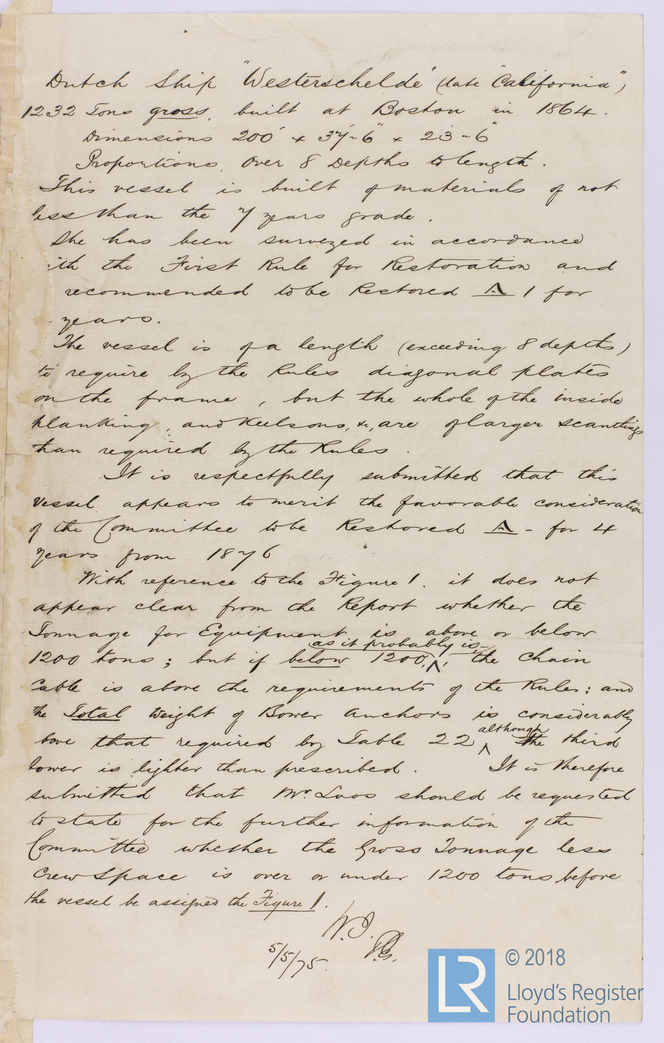 Dutch Ship "Westerschelde" (late "California")
1232 Tons gross, built at Boston in 1864.
Dimensions 200' x 37'-6" x 23'-6"
Proportions, Over 8 Depths to length.
This vessel is built of materials of not
less than the 7 years grade.
She has been surveyed in accordance
ith the First Rule for Restoration and
recommended to be Restored A 1 for
years.
The vessel is of a length (exceeding 8 depths)
to require by the Rules diagonal plates
on the frame, but the whole of the inside
planking, and Keelsons, &c, are of larger scantlings
than required by the Rules.
It is respectfully submitted that this
vessel appears to merit the favorable consideration
of the Committee to be Restored A - for 4
years from 1876
With reference to the Figure 1. it does not
appear clear from the Report whether the
Tonnage for Equipment is above or below
as it probably is
1200 tons; but if below 1200, the Chain
Cable is above the requirements of the Rules; and
the Total weight of Bower Anchors is considerably
although
bove that required by Table 22 the third
bower is lighter than prescribed. It is therefore
submitted that Mr. Loos should be requested
to state for the further information of the
Committee whether the Gross Tonnage less
Crew Space is over or under 1200 tons before
the vessel be assigned the Figure 1.
5/5/75.
LR
© 2018
Lloyd's Register
Foundation